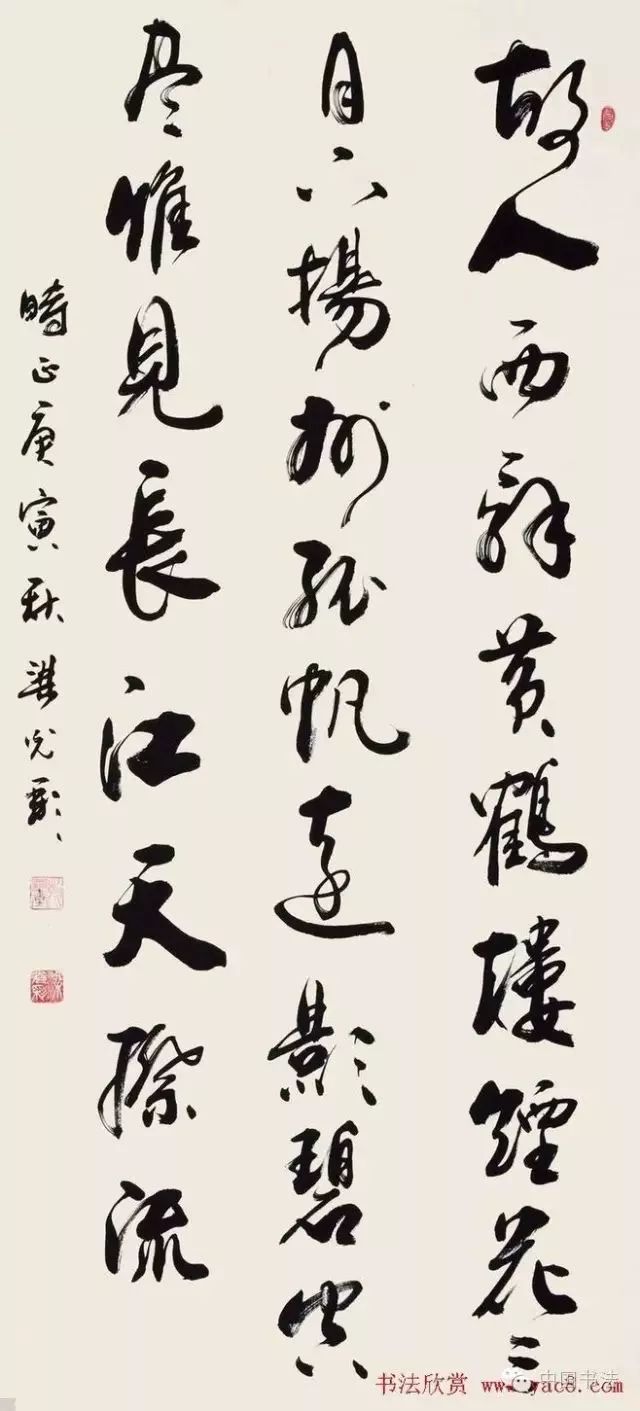 故人西辞黄鹤楼烟花三
月下揚州孤帆遠影碧空
尽惟見長江天際流
時正庚寅秋
书法欣赏 www.yac8.com
中国书法